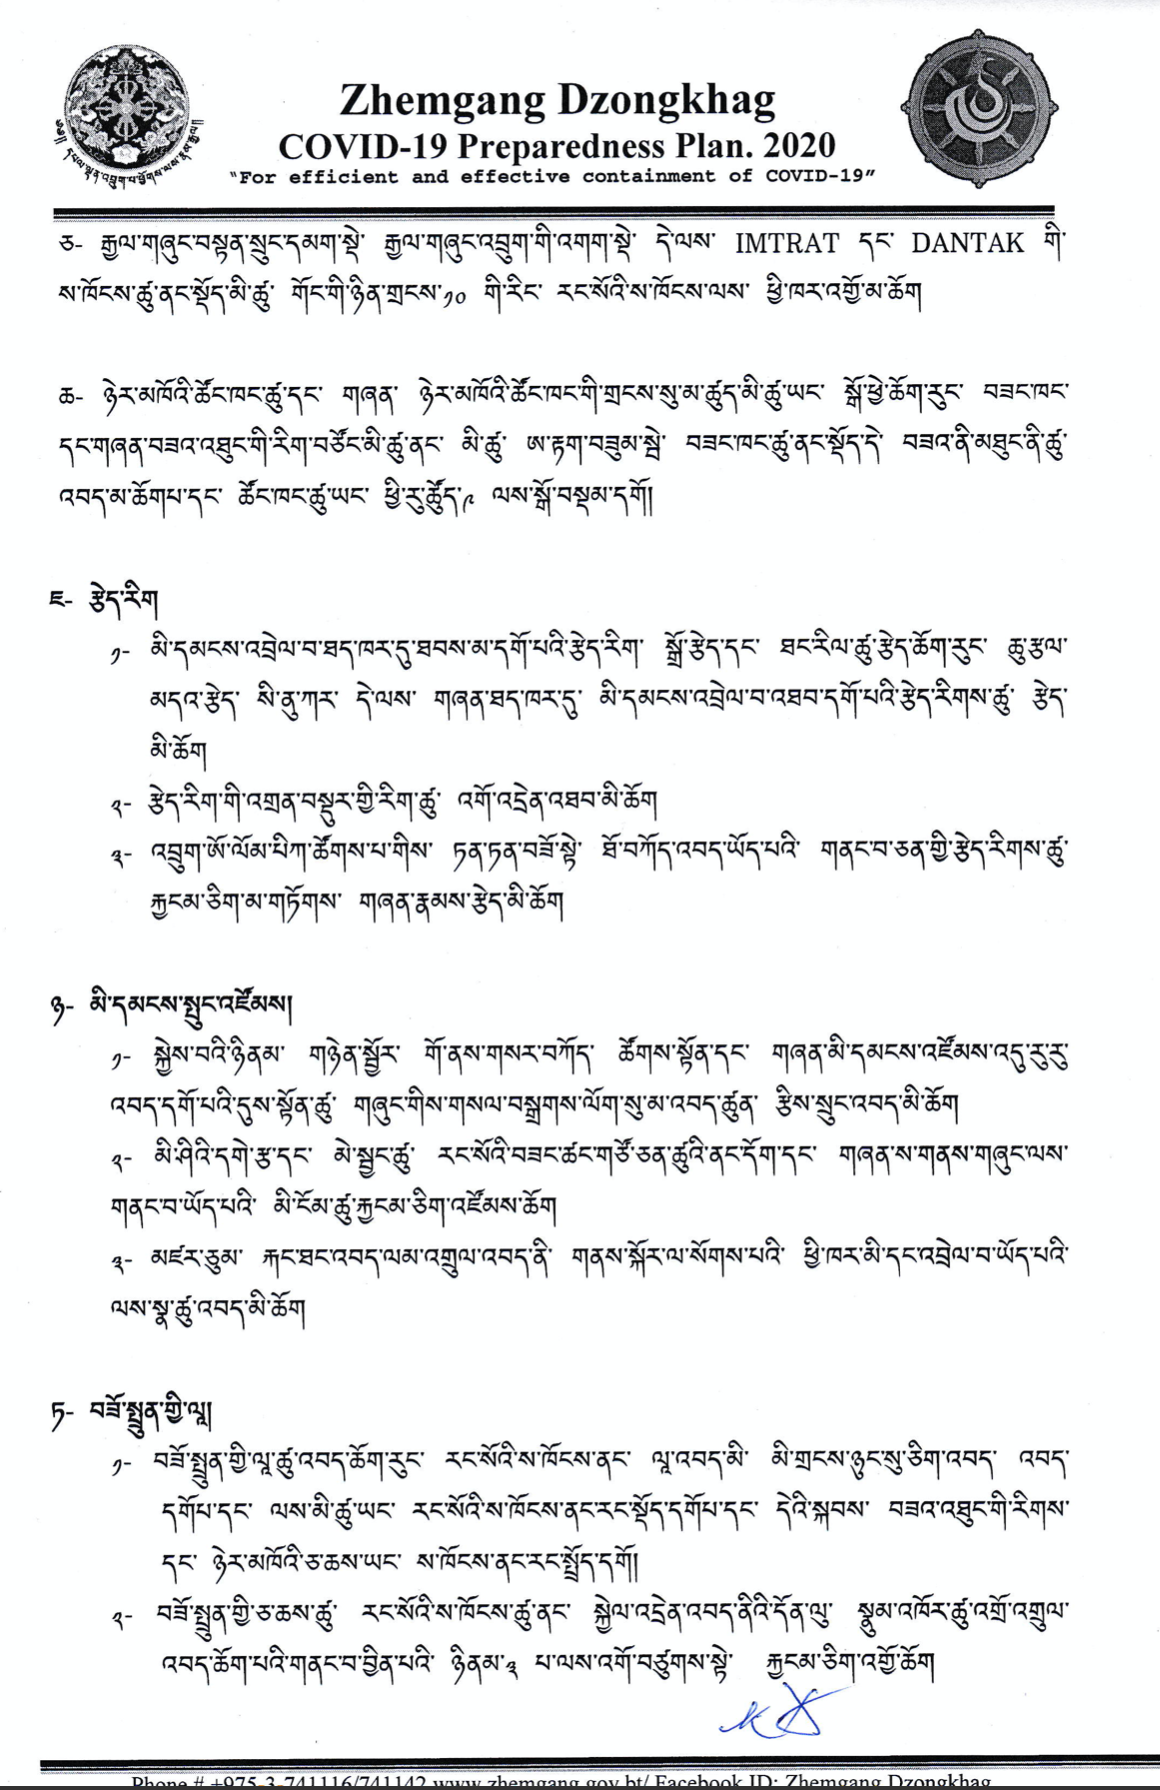 Zhemgang Dzongkhag
COVID-19 Preparedness Plan. 2020
"For efficient and effective containment of COVID-19"
ཅ- རྒྱལ་གཞུང་བསྟན་སྲུང་དམག་སྡེ་ རྒྱལ་གཞུང་འབྲུག་གི་འགག་སྡེ་ དེ་ལས་ IMTRAT དང་ DANTAK གི་
ས་ཁོངས་ཚུ་ནང་སྡོད་མི་ཚུ་ གོང་གི་ཉིན་གྲངས་༡༠ གི་རིང་ རང་སོའི་ས་ཁོངས་ལས་ ཕྱི་ཁར་འགྱོ་མ་ཆོག
ཆ- ཉེར་མཁོའི་ཚོང་ཁང་ཚུ་དང་ གཞན་ ཉེར་མཁོའི་ཚོང་ཁང་གི་གྲངས་སུ་མ་ཚུད་མི་ཚུ་ཡང་ སྒོ་ཕྱེ་ཆོག་རུང་ བཟང་ཁང་
དང་གཞན་བཟའ་འཐུང་གི་རིག་བཙོང་མི་ཚུ་ནང་ མི་ཚུ་ ཨ་རྟག་བཟུམ་སྦེ་ བཟང་ཁང་ཚུ་ནང་སྡོད་དེ་ བཟའ་ནི་མཐུང་ནི་ཚུ་
འབད་མ་ཆོགཔ་དང་ ཚོང་ཁང་ཚུ་ཡང་ ཕྱི་རུ་ཆོུད་༩ ལས་སྒོ་བསྡམ་དགོ།
ཇ- རྩེད་རིག
༡- མི་དམངས་འབྲེལ་བ་ཐད་ཁར་དུ་ཐབས་མ་དགོ་པའི་རྩེད་རིག་ སྒྲོ་རྩེད་དང་ ཐང་རིལ་ཚུ་རྩེད་ཆོག་རུང་ ཆུ་རྩལ་
མདའ་རྩེད་ སི་ནུ་ཀར་ དེ་ལས་ གཞན་ཐད་ཁར་དུ་ མི་དམངས་འབྲེལ་བ་འཐབ་དགོ་པའི་རྩེད་རིགས་ཚུ་ རྩེད་
མི་ཆོག
༢- རྩེད་རིག་གི་འགྲན་བསྡུར་གྱི་རིག་ཚུ་ འགོ་འདྲེན་འཐབ་མི་ཆོག
༣- འབྲུག་ཨོ་ལོམ་པིཀ་ཚོགས་པ་གིས་ ཏན་ཏན་བཟོ་སྟེ་ ཐོ་བཀོད་འབད་ཡོད་པའི་ གནང་བ་ཅན་གྱི་རྩེད་རིགས་ཚུ་
རྐྱངམ་ཅིག་མ་གཏོགས་ གཞན་རྣམས་རྩེད་མི་ཆོག
ཉ- མི་དམངས་སྤུང་འཛོམས།
༡- སྐྱེས་བའི་ཉིནམ་ གཉེན་སྦྱོར་ གོ་ནས་གསར་བཀོད་ ཚོགས་སྟོན་དང་ གཞན་མི་དམངས་འཛོམས་འདུ་རུ་རུ་
འབད་དགོ་པའི་དུས་སྟོན་ཚུ་ གཞུང་གིས་གསལ་བསྒྲགས་ལོག་སུ་མ་འབད་ཚུན་ རྩིས་སྲུང་འབད་མི་ཆོག
༢- མི་ཤིའི་དགེ་རྩ་དང་ མེ་སྦྱང་ཚུ་ རང་སོའི་བཟང་ཚང་གཙོ་ཅན་ཚུའི་ནང་དོག་དང་ གཞན་ས་གནས་གཞུང་ལས་
གནང་བ་ཡོད་པའི་ མི་ངོམ་ཚུ་རྐྱངམ་ཅིག་འཛོམས་ཆོག
༣- མཛར་ཅུམ་ རྐང་ཐང་འབད་ལམ་འགྲུལ་འབད་ནི་ གནས་སྐོར་ལ་སོགས་པའི་ ཕྱི་ཁར་མི་དང་འབྲེལ་བ་ཡོད་པའི་
ལས་སྣ་ཚུ་འབད་མི་ཆོག
ཏ- བཟོ་སྤྲུན་གྱི་ལཱ།
༡- བཟོ་སྤྲུན་གྱི་ལཱ་ཚུ་འབད་ཆོག་རུང་ རང་སོའི་ས་ཁོངས་ནང་ ལཱ་འབད་མི་ མི་གྲངས་ཉུང་སུ་ཅིག་འབད་ འབད་
དགོཔ་དང་ ལས་མི་ཚུ་ཡང་ རང་སོའི་ས་ཁོངས་ནང་རང་སྡོད་དགོཔ་དང་ དེའི་སྐབས་ བཟའ་འཐུང་གི་རིགས་
དང་ ཉེར་མཁོའི་ཅ་ཆས་ཡང་ ས་ཁོངས་ནང་རང་སྤྲོད་དགོ།
༢- བཟོ་སྤྲུན་གྱི་ཅ་ཆས་ཚུ་ རང་སོའི་ས་ཁོངས་ཚུ་ནང་ སྐྱེལ་འདྲེན་འབད་ནིའི་དོན་ལུ་ སྣུམ་འཁོར་ཚུ་འགྲོ་འགྲུལ་
འབད་ཆོག་པའི་གནང་བ་བྱིན་པའི་ ཉིནམ་༣ པ་ལས་འགོ་བཙུགས་སྟེ་ རྐྱངམ་ཅིག་འགྱོ་ཆོག
Phone # +975-3-741116/741142 www.zhemgang.gov.bt/ Facebook ID: Zhemgang Dzongkhag